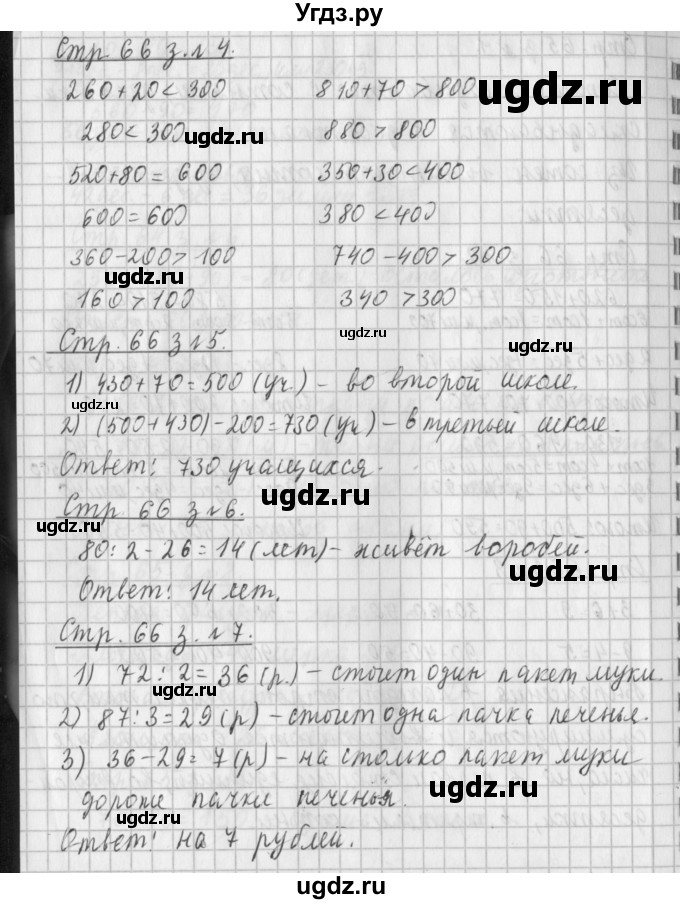 Угдз.ру
Стр 66 з.№ 4.
260+20<300 810+70>800
280<300 880>800
520+80=600 350+30<400
600=600 380<400
360-200>100 740-400>300
160>100 340>300
Стр. 66 з №5.
1) 430+70=500 (уч.) - во второй школе.
2) (500+430)-200=730 (уч) - в третьей школе.
Ответ: 730 учащихся.
Стр 66 з №6.
80:2-26=14 (лет) - живёт воробей.
Ответ: 14 лет.
Стр. 66 з. № 7.
1) 72:2=36 (р.) - стоит один пакет муки.
2) 87:3=29 (р) - стоит одна пачка печенья.
3) 36-29=7 (р) - на столько пакет муки
дороже пачки печенья.
Ответ: на 7 рублей.
ugdz.ru
ugdz.ru
ugdz.ru
ugdz.ru
ugdz.ru
ugdz.ru
ugdz.ru
ugdz.ru
ugdz.ru
ugdz.ru
ugdz.ru
ugdz.ru
ugdz.ru
ugdz.ru